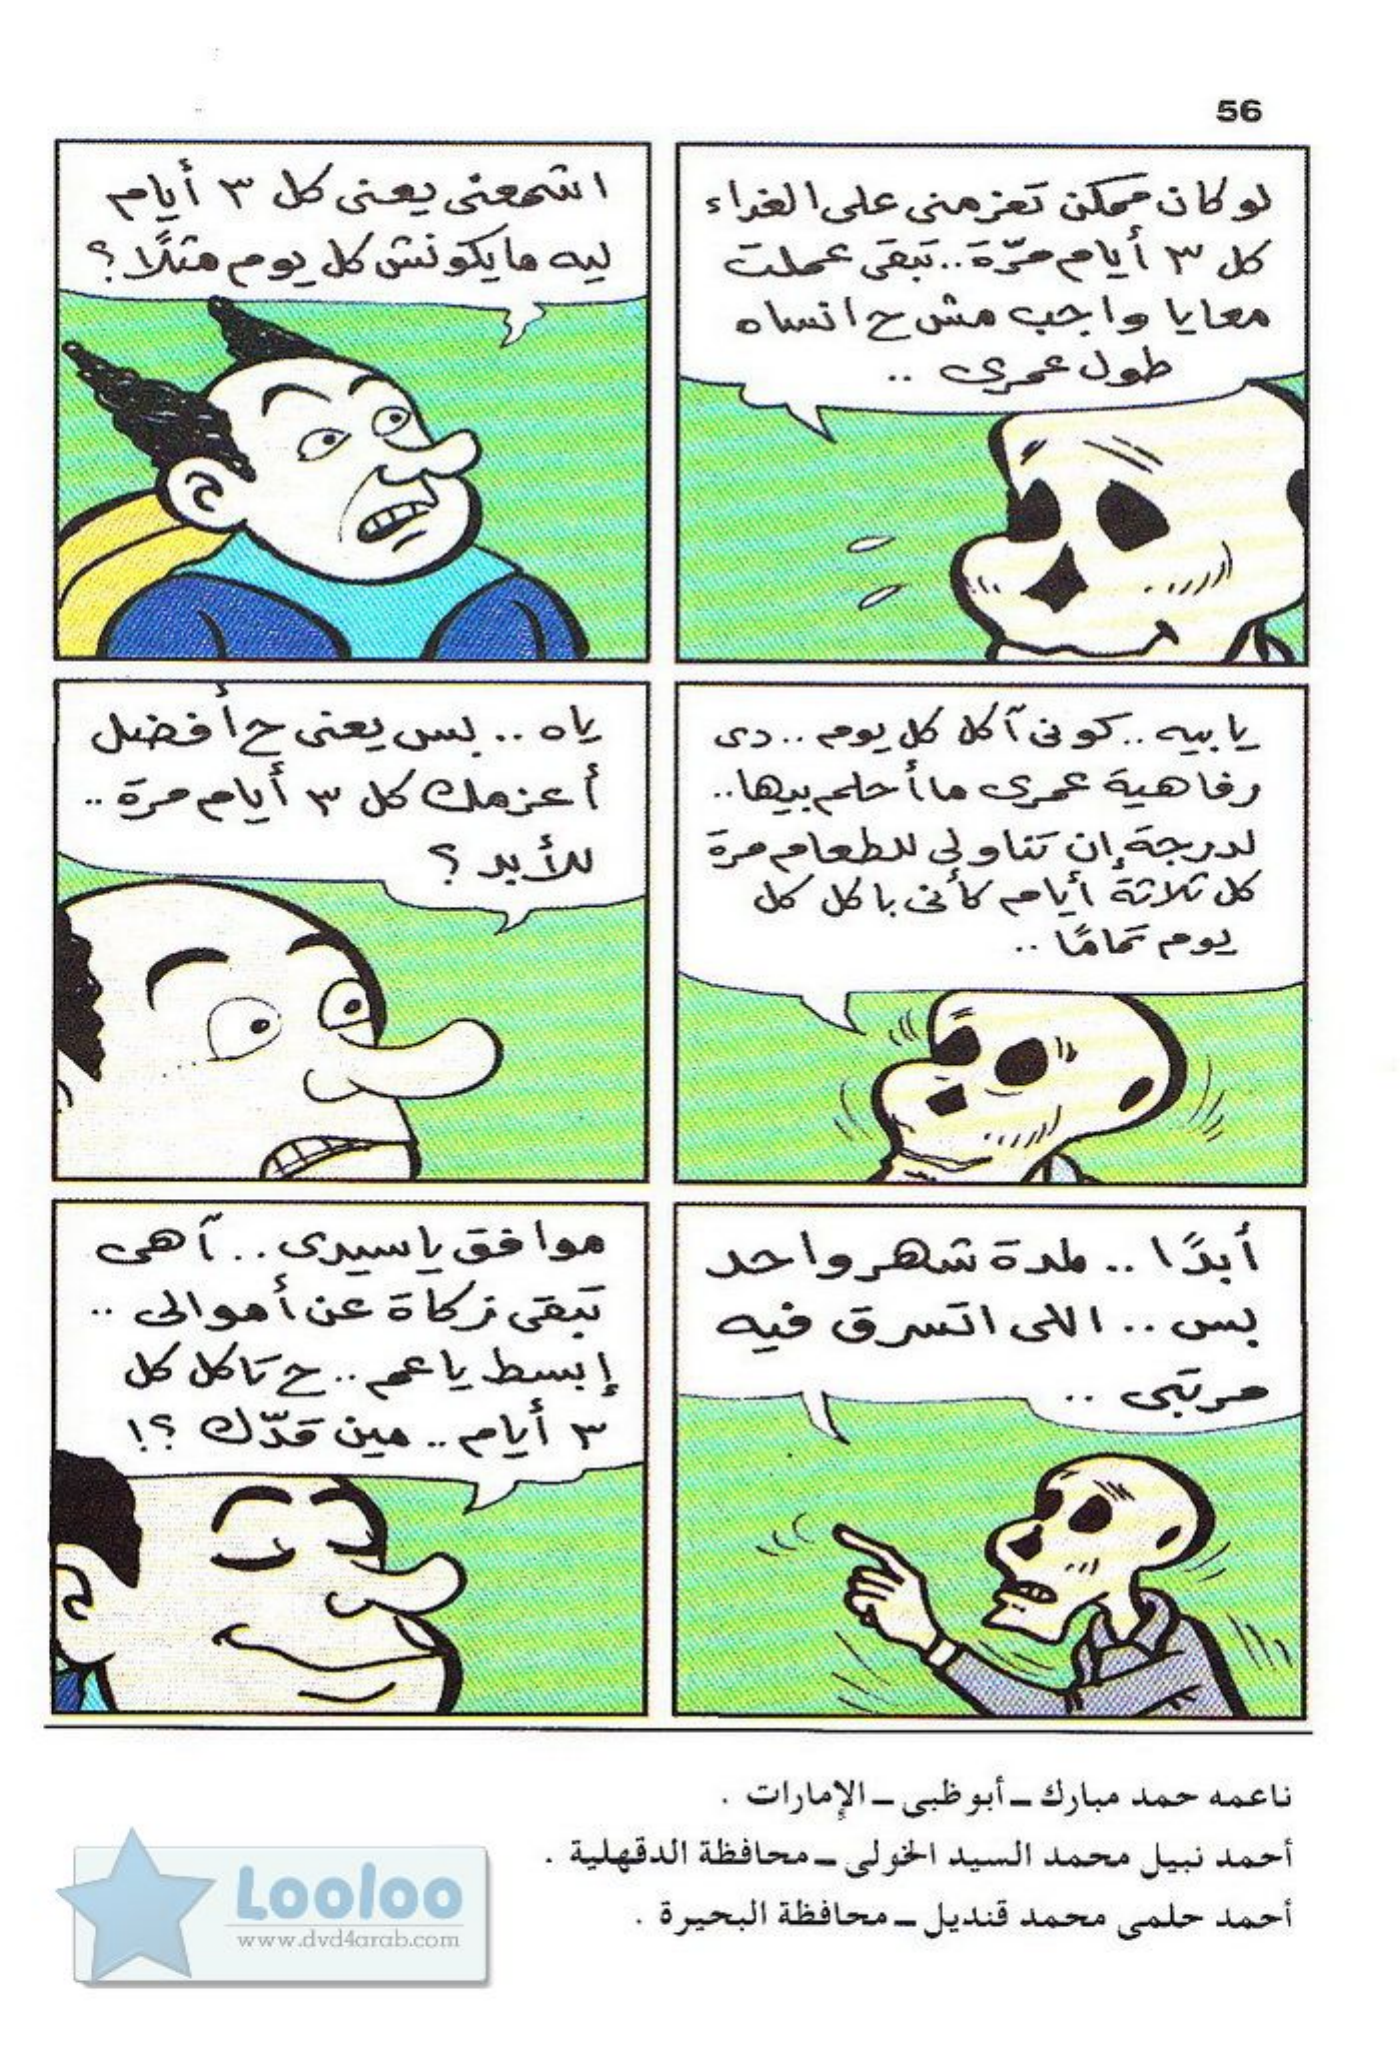 56
لو كان ممكن تعزمنى على الغداء
كل ٣ أيام مرّة .. تبقى عملت
معايا واجب مش ح انساه
طول عمرى ..
اشمعنى يعنى كل ٣ أيام
ليه مايكونش كل يوم مثلًا ؟
يا بيه .. كونى آكل كل يوم .. دى
رفاهية عمرى ما أحلم بيها ..
لدرجة إن تناولى للطعام مرة
كل ثلاثة أيام كأنى باكل كل
يوم تمامًا ..
ياه .. بس يعنى ح أفضل
أعزمك كل ٣ أيام مرة ..
للأبد ؟
أبدًا .. لمدة شهر واحد
بس .. اللى اتسرق فيه
مرتبى ..
موافق يا سيدى .. آهى
تبقى زكاة عن أموالى ..
إبسط يا عم .. ح تاكل كل
٣ أيام .. مين قدّك ؟!
ناعمه حمد مبارك ـ أبو ظبى ـ الإمارات .
أحمد نبيل محمد السيد الخولى ـ محافظة الدقهلية .
أحمد حلمى محمد قنديل ـ محافظة البحيرة .
Looloo
www.dvd4arab.com